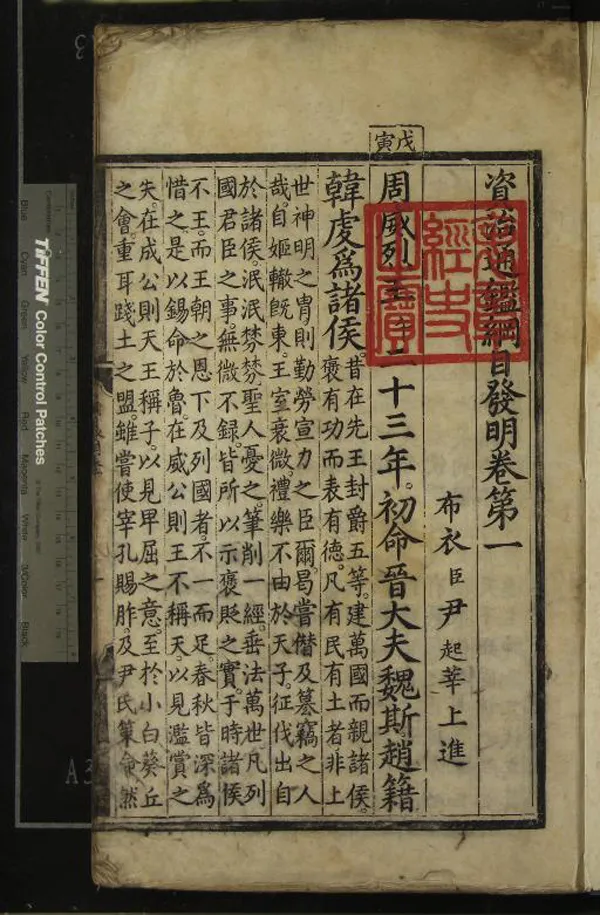 資治通鑑綱目發明卷第一
布衣臣尹起莘上進
戊寅
周威列王二十三年。初命晉大夫魏斯趙籍
韓虔爲諸侯。
昔在先王封爵五等。建萬國而親諸侯。
褒有功而表有德。凡有民有土者非上
世神明之胄則勤勞宣力之臣爾。曷嘗僭及簒竊之人
哉。自姬轍旣東。王室衰微。禮樂不由於天子。征伐出自
於諸侯。泯泯棼棼。聖人憂之。筆削一經。垂法萬世凡列
國君臣之事。無微不録。皆所以示褒貶之實。于時諸侯
不王。而王朝之恩下及列國者。不一而足。春秋皆深爲
惜之。是以錫命於魯。在威公則王不稱天。以見濫賞之
失。在成公則天王稱子。以見卑屈之意。至於小白葵丘
之會。重耳踐土之盟。雖嘗使宰孔賜胙。及尹氏策命。然
經史
之寶
TIFFEN Color Control Patches
Blue Cyan Green Yellow Red Magenta White 3/Color Black